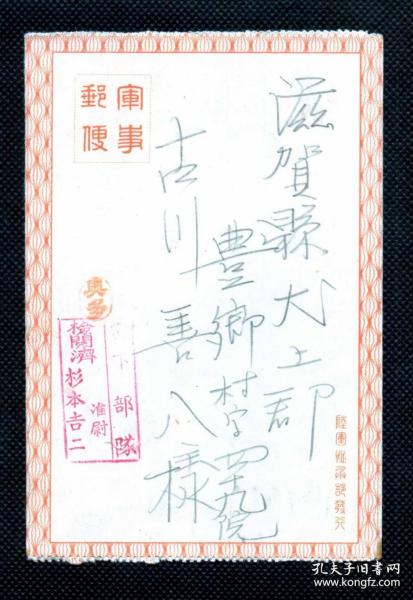 軍事
郵便
滋賀縣犬上郡
豊郷村字四十九院
古川善八様
奥多
部隊
檢閲濟
准尉
杉本吉二
孔夫子旧书网
www.kongfz.com